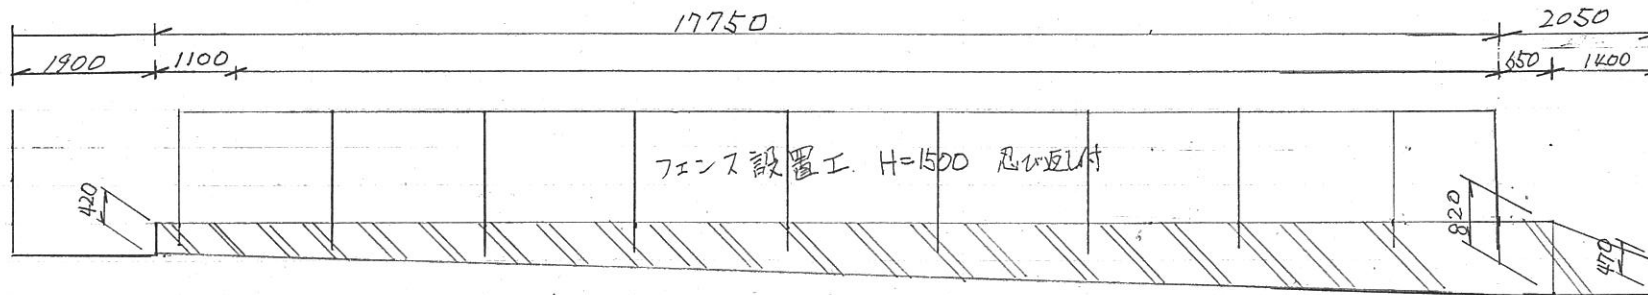 17750
2050
1900
1100
650
1400
フェンス設置工. H=1500 忍び返し付
420
820
470